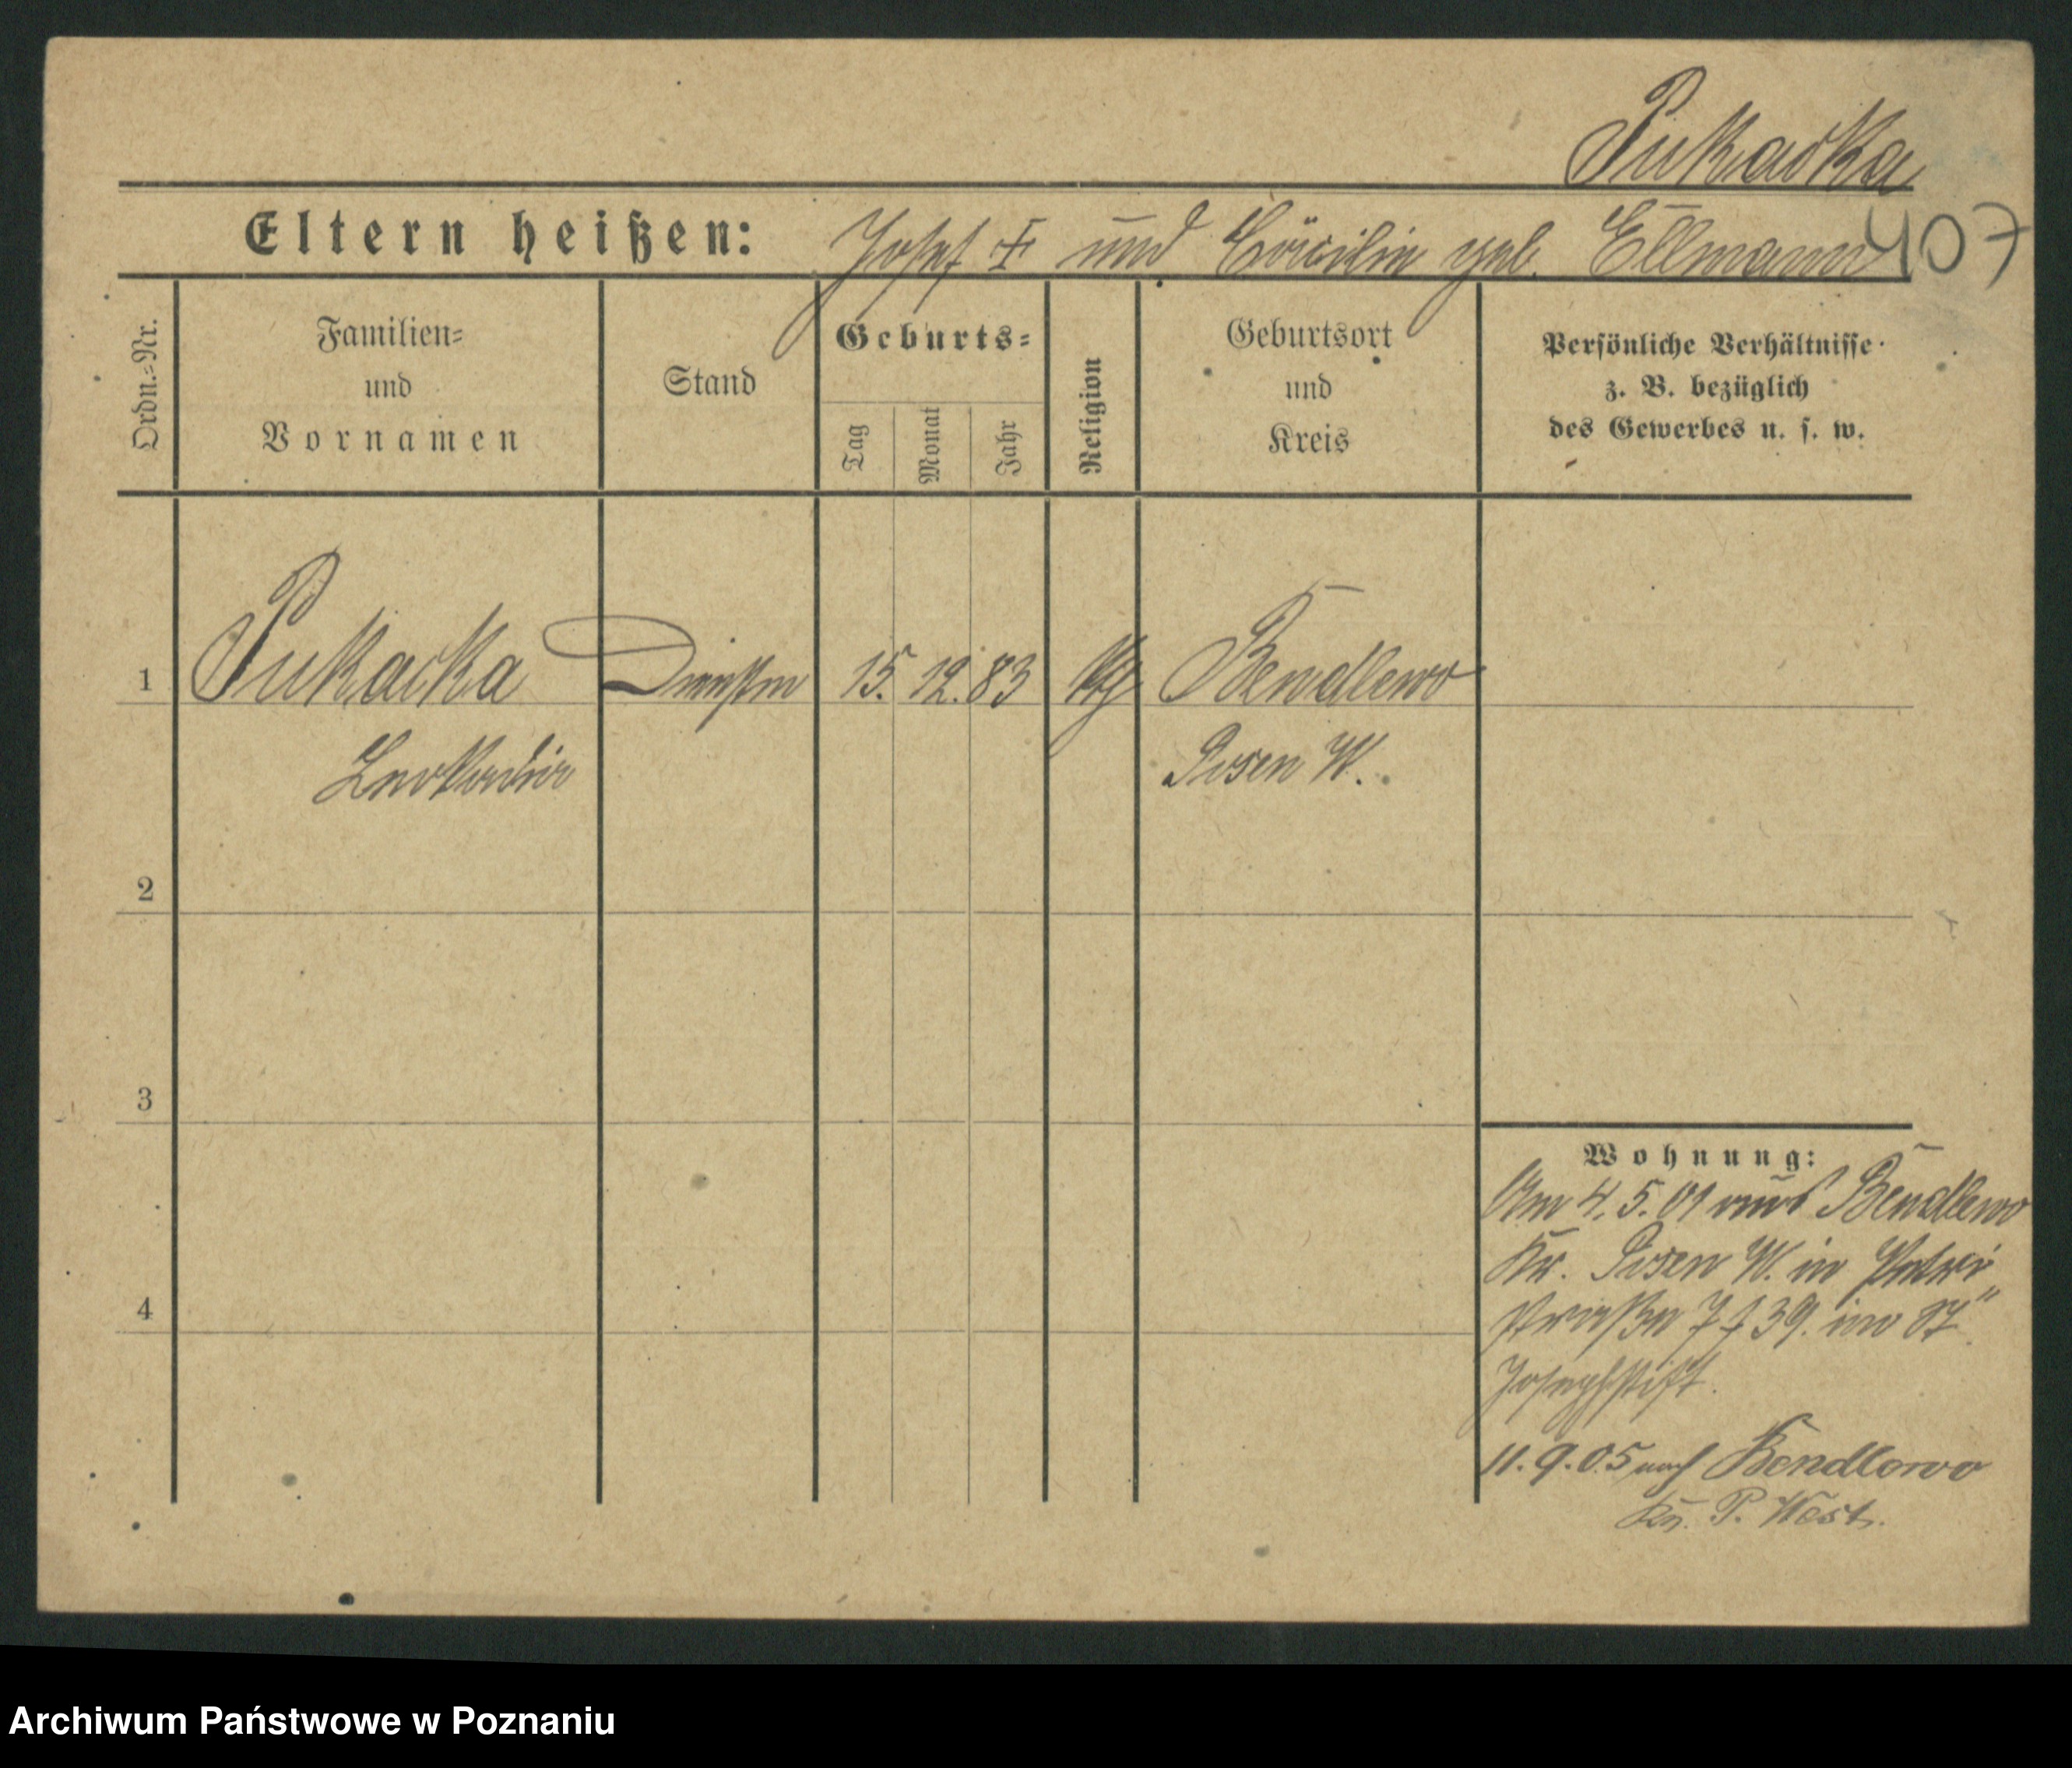 Pukacka
Eltern heißen: Josef ‡ und Cäcilie geb. Ellmann 407
Ordn.=Nr.
Familien=
und
Vornamen
Stand
Geburts=
Tag
Monat
Jahr
Religion
Geburtsort
und
Kreis
Persönliche Verhältnisse
z. B. bezüglich
des Gewerbes u. s. w.
1 Pukacka 15. 12. 83 Bendlewo
Leokadie Posen W.
2
3
4
Wohnung:
Am 4. 5. 01 aus Bendlewo
Kr. Posen W. in Petri
straße 7 39. im St
Josephstift.
11. 9. 05 nach Bendlewo
Kr. P. West.
Archiwum Państwowe w Poznaniu